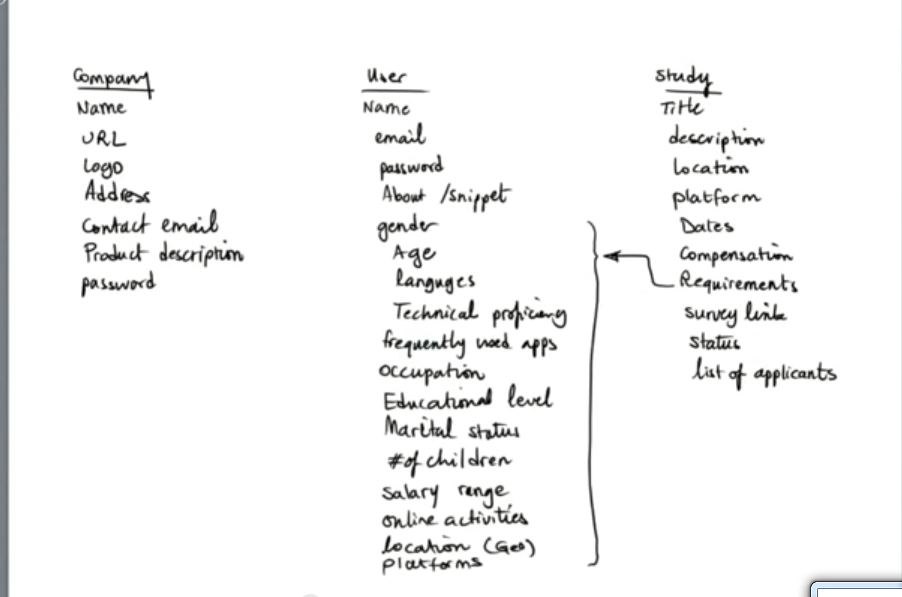 Company
Name
URL
Logo
Address
Contact email
Product description
password
User
Name
email
password
About /snippet
gender
Age
languges
Technical proficiency
frequently used apps
occupation
Educational level
Marital status
# of children
salary range
online activities
location (Geo)
platforms
Study
Title
description
location
platform
Dates
Compensation
Requirements
survey link
status
list of applicants